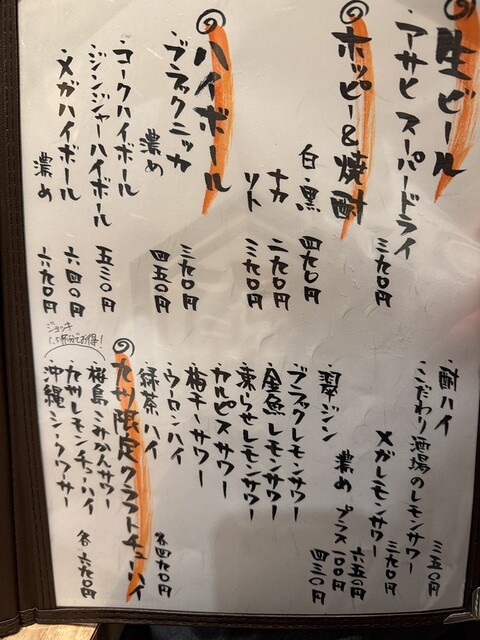 生ビール
・アサヒスーパードライ
三九〇円
ホッピー&焼酎
白・黒 四九〇円
ナカ 二九〇円
ソト 三九〇円
ハイボール
・ブラックニッカ 三九〇円
濃め 四五〇円
・コークハイボール
・ジンジャーハイボール 五三〇円
・メガハイボール 六四〇円
濃め 六九〇円
・酎ハイ 三五〇円
・こだわり酒場のレモンサワー 三九〇円
メガレモンサワー 六五〇円
濃め プラス 100円
・翠ジン 四三〇円
・ブラックレモンサワー
・金魚レモンサワー
・凍らせレモンサワー
・カルピスサワー
・梅干サワー
・ウーロンハイ
・緑茶ハイ 各四九〇円
九州限定クラフトチューハイ
・桜島こみかんサワー
・九州レモンチューハイ
・沖縄シークワサー 各六九〇円
ジョッキ
1.5杯分でお得!